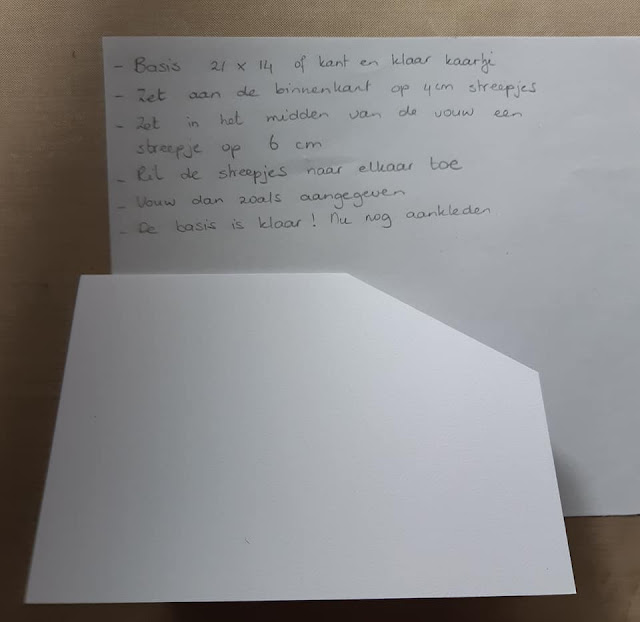 - Basis 21 x 14 of kant en klaar kaartje
- Zet aan de binnenkant op 4cm streepjes
- Zet in het midden van de vouw een
streepje op 6 cm
- Ril de streepjes naar elkaar toe
- Vouw dan zoals aangegeven
- De basis is klaar! Nu nog aankleden